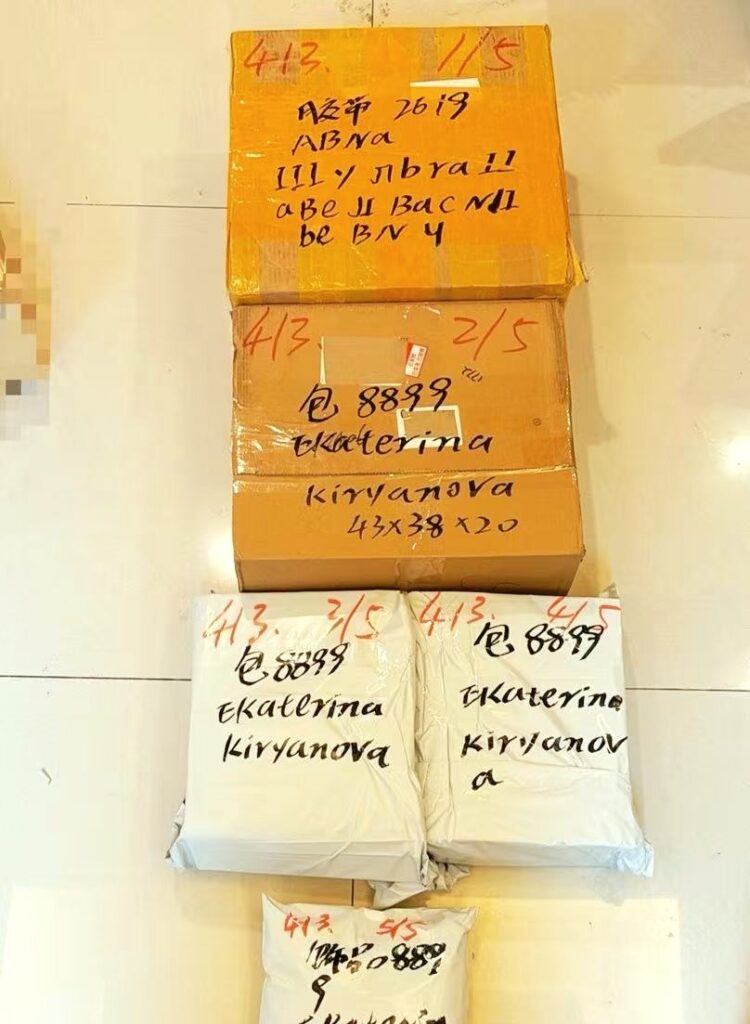 413. 1/5
胶带 2619
ABNa
III y ЛbraII
aBeII BacNII
be BN Ч
413. 2/5
包 8899
Ekaterina
Kiryanova
43×38×20
413. 3/5
包 8899
Ekaterina
Kiryanova
413. 4/5
包 8899
Ekaterina
Kiryanov
a
413. 5/5
饰品 889
9